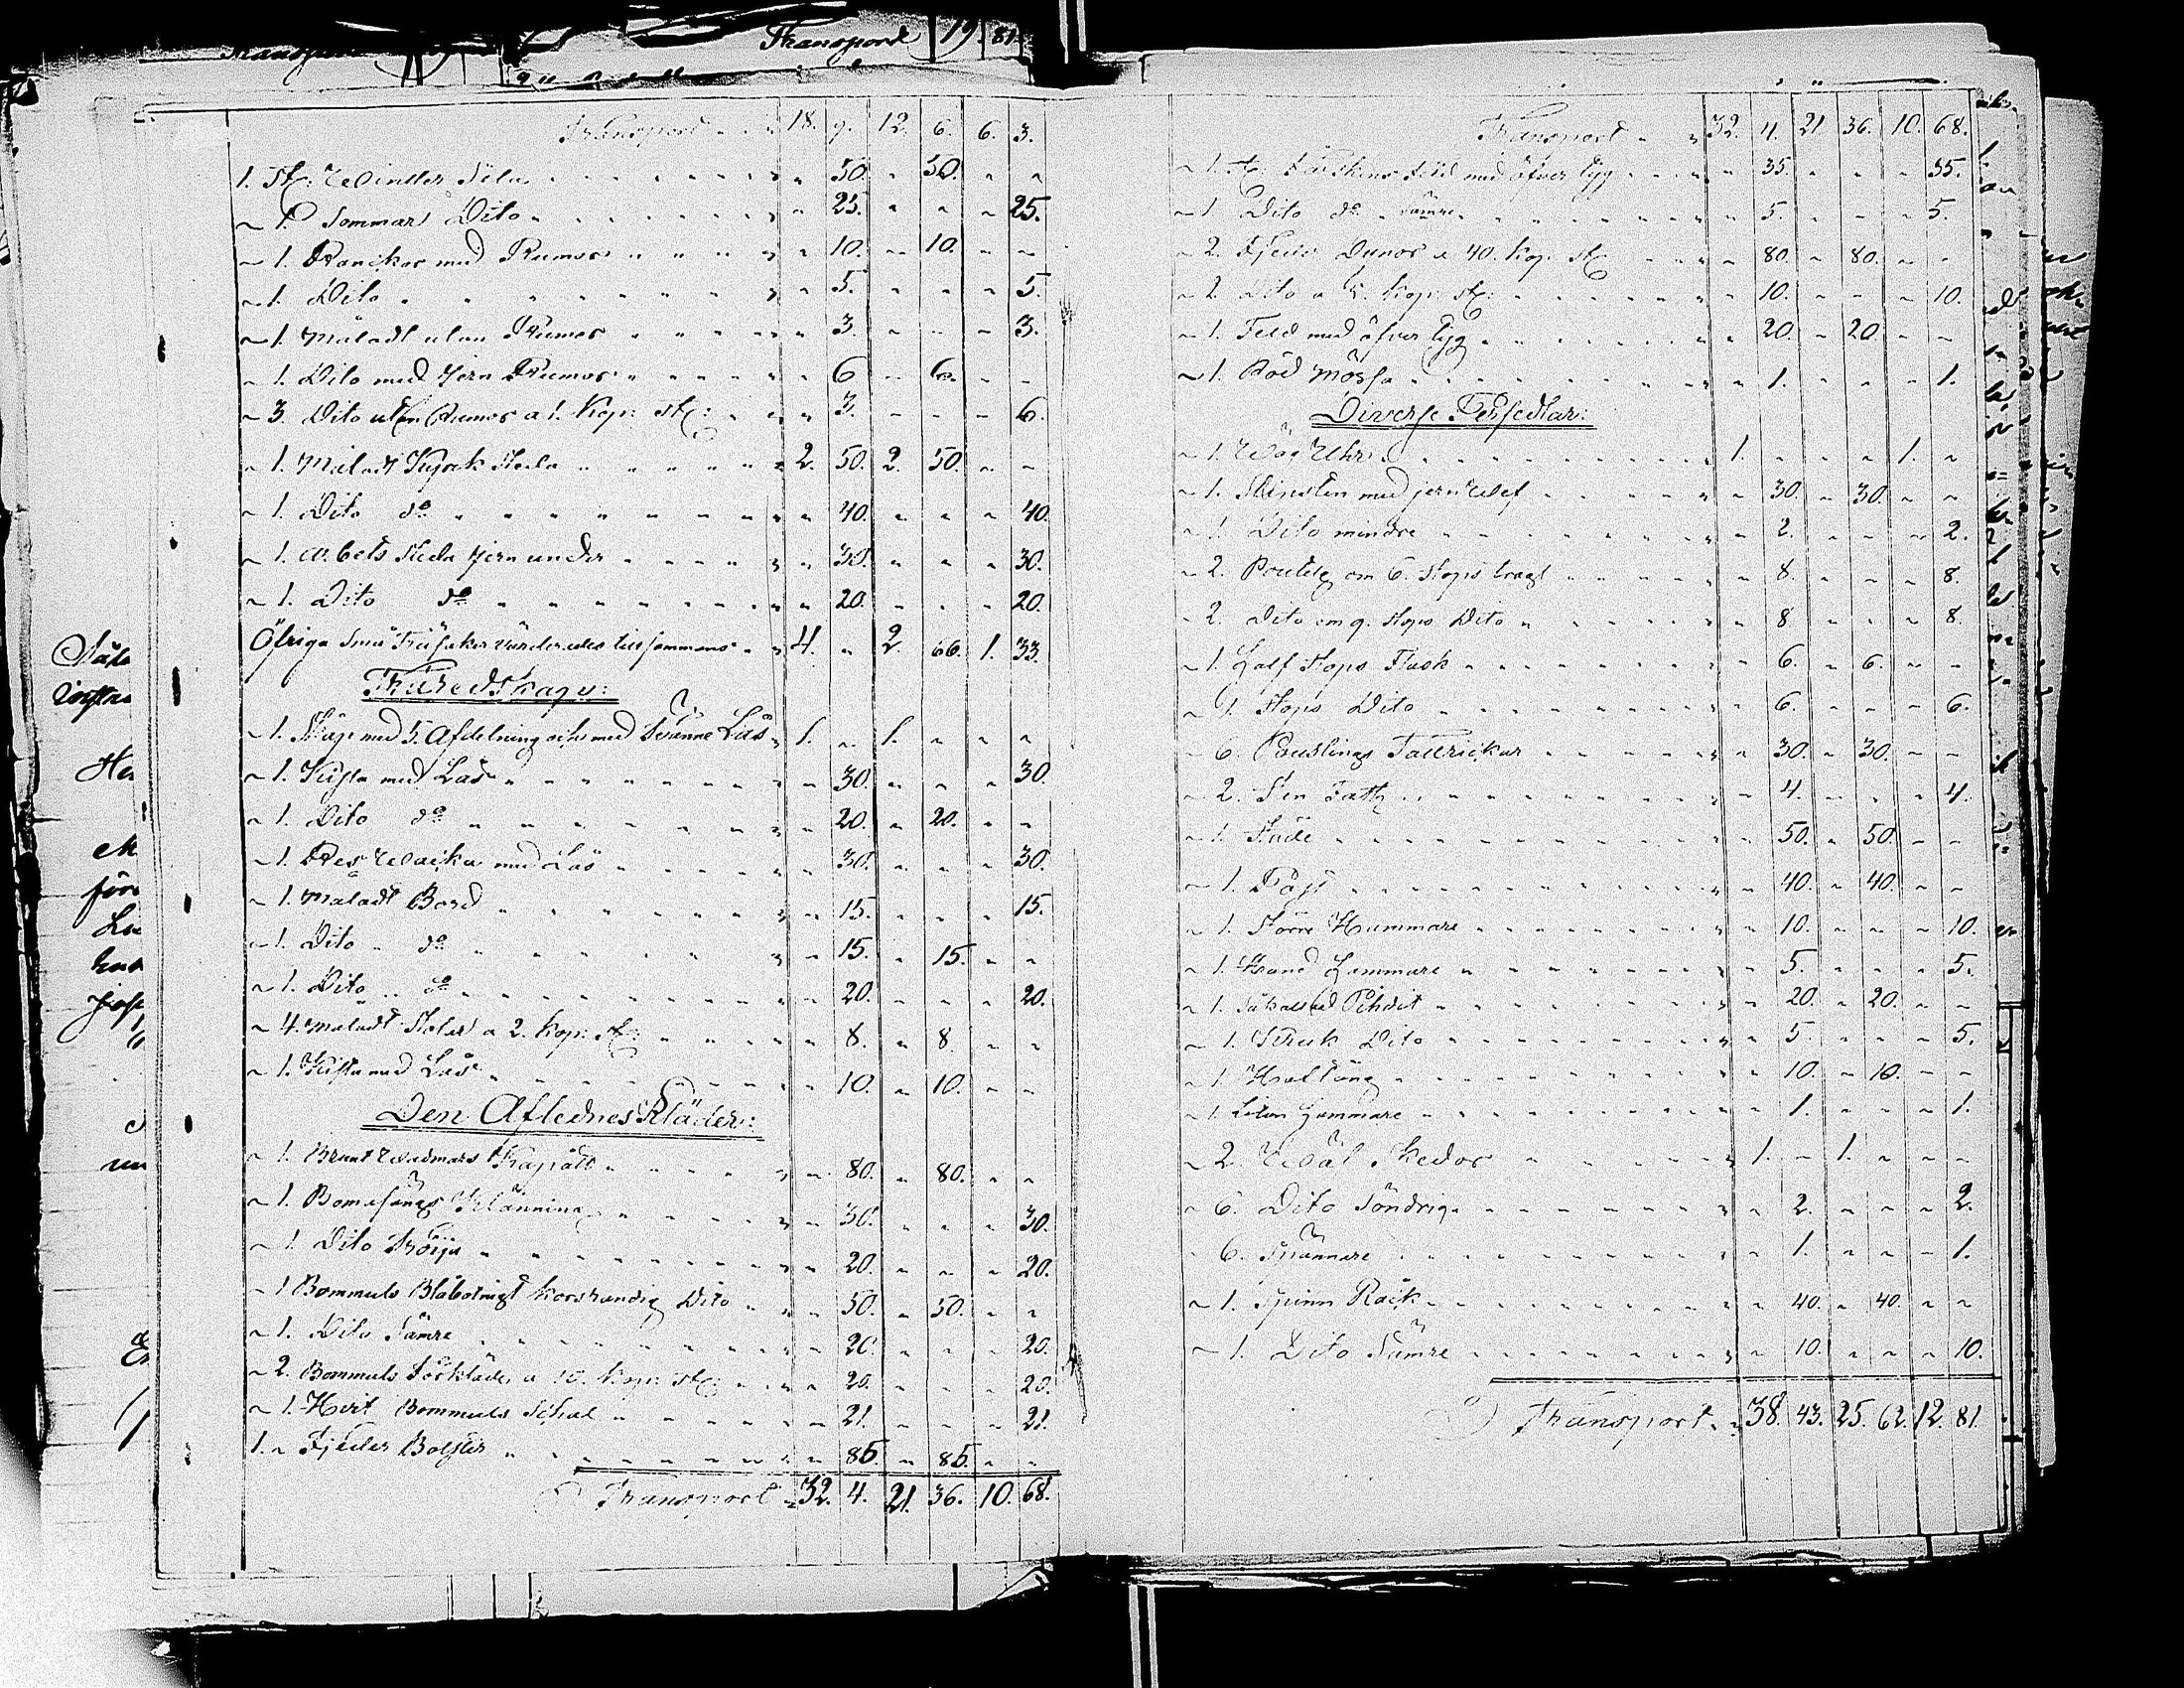 Transport 19 81
Transport 18. 9. 12. 6. 6. 3.
1. St: Winter Sela " 50. " 50. " "
1. D Sommar Dito " 25. " " " 25.
1. Ranckor med Remor " 10. " 10. " "
1. Dito " 5. " " " 5.
1. Måladt utan Remor " 3. " " " 3.
1. Dito med Jern Remor " 6 " 6. " "
3. Dito utan Remor a 1. Kop: St: " 3. " " " 6.
1. Måladt Kyrck Sleda 2. 50. 2. 50. " "
1. Dito do " 40. " " " 40.
1. arbets Sleda Jern under " 30. " " " 30.
1. Dito do " 20. " " " 20.
Öfriga Små Träsaker värderades tillsammans 4. " 2. 66. 1. 33.
Träredskaper:
1. Skåp med 5. Afdelning och med Lås 1. " 1. " " "
1. Kista med Lås " 30. " " " 30.
1. Dito do " 20. " 20. " "
1. Res Wäcka med Lås " 30. " " " 30.
1. Måladt Bord " 15. " " " 15.
1. Dito do " 15. " 15. " "
1. Dito do " 20. " " " 20.
4. Måladt Stolar a 2. Kop: St: " 8. " 8. " "
1. Kista med Lås " 10. " 10. " "
Den Aflednes Kläder:
1. Brunt Wadmars Kapått " 80. " 80. " "
1. Bomasängs Klänning " 30. " " " 30.
1. Dito Tröija " 20. " " " 20.
1 Bommuls Blåbotnigt Dito " 50. " 50. " "
1. Dito Sämre " 20. " " " 20.
2. Bommuls Förkläder a 10. Kop: St: " 20. " " " 20.
1. Hvit Bommuls Schal " 21. " " " 21.
1. Fjeder Bolster " 85. " 85. " "
Transport 32. 4. 21. 36. 10. 68.
Transport 32. 4. 21. 36. 10. 68.
1. St: Fårskins Feld med öfver tyg " 35. " " " 35.
1 Dito do Sämre " 5. " " " 5.
2. Fjeder Dynor a 40. Kop: St: " 80. " 80. " "
2. Dito a 5. Kop: St: " 10. " " " 10.
1. Feld med öfver tyg " 20. " 20. " "
1. Röd Mössa " 1. " " " 1.
Diverse Persedlar:
1. Wäg Uhr 1. " " " 1. "
1. Slipsten med jern Wef " 30. " 30. " "
1 Dito mindre " 2. " " " 2.
2. Boutelg om 6. Stops " 8. " " " 8.
2. Dito om 9. Stops Dito " 8. " " " 8.
1. Half Stops Flask " 6. " 6. " "
1. Stops Dito " 6. " " " 6.
6. Pouslings Tallrickar " 30. " 30. " "
2. Sten Fath " 4. " " " 4.
1. Städe " 50. " 50. " "
1. Bälg " 40. " 40. " "
1. Större Hammare " 10. " " " 10.
1. Hand Hammare " 5. " " " 5.
1. " 20. " 20. " "
1. Skruk Dito " 5. " " " 5.
1. Håltång " 10. " 10. " "
1. Liten Hammare " 1. " " " 1.
2. Wäf Skedor 1. " 1. " " "
6. Dito Söndrig " 2. " " " 2.
6. Spännare " 1. " " " 1.
1. Spinn Råck " 40. " 40. " "
1. Dito Sämre " 10. " " " 10.
Transport 38. 43. 25. 62. 12. 81.